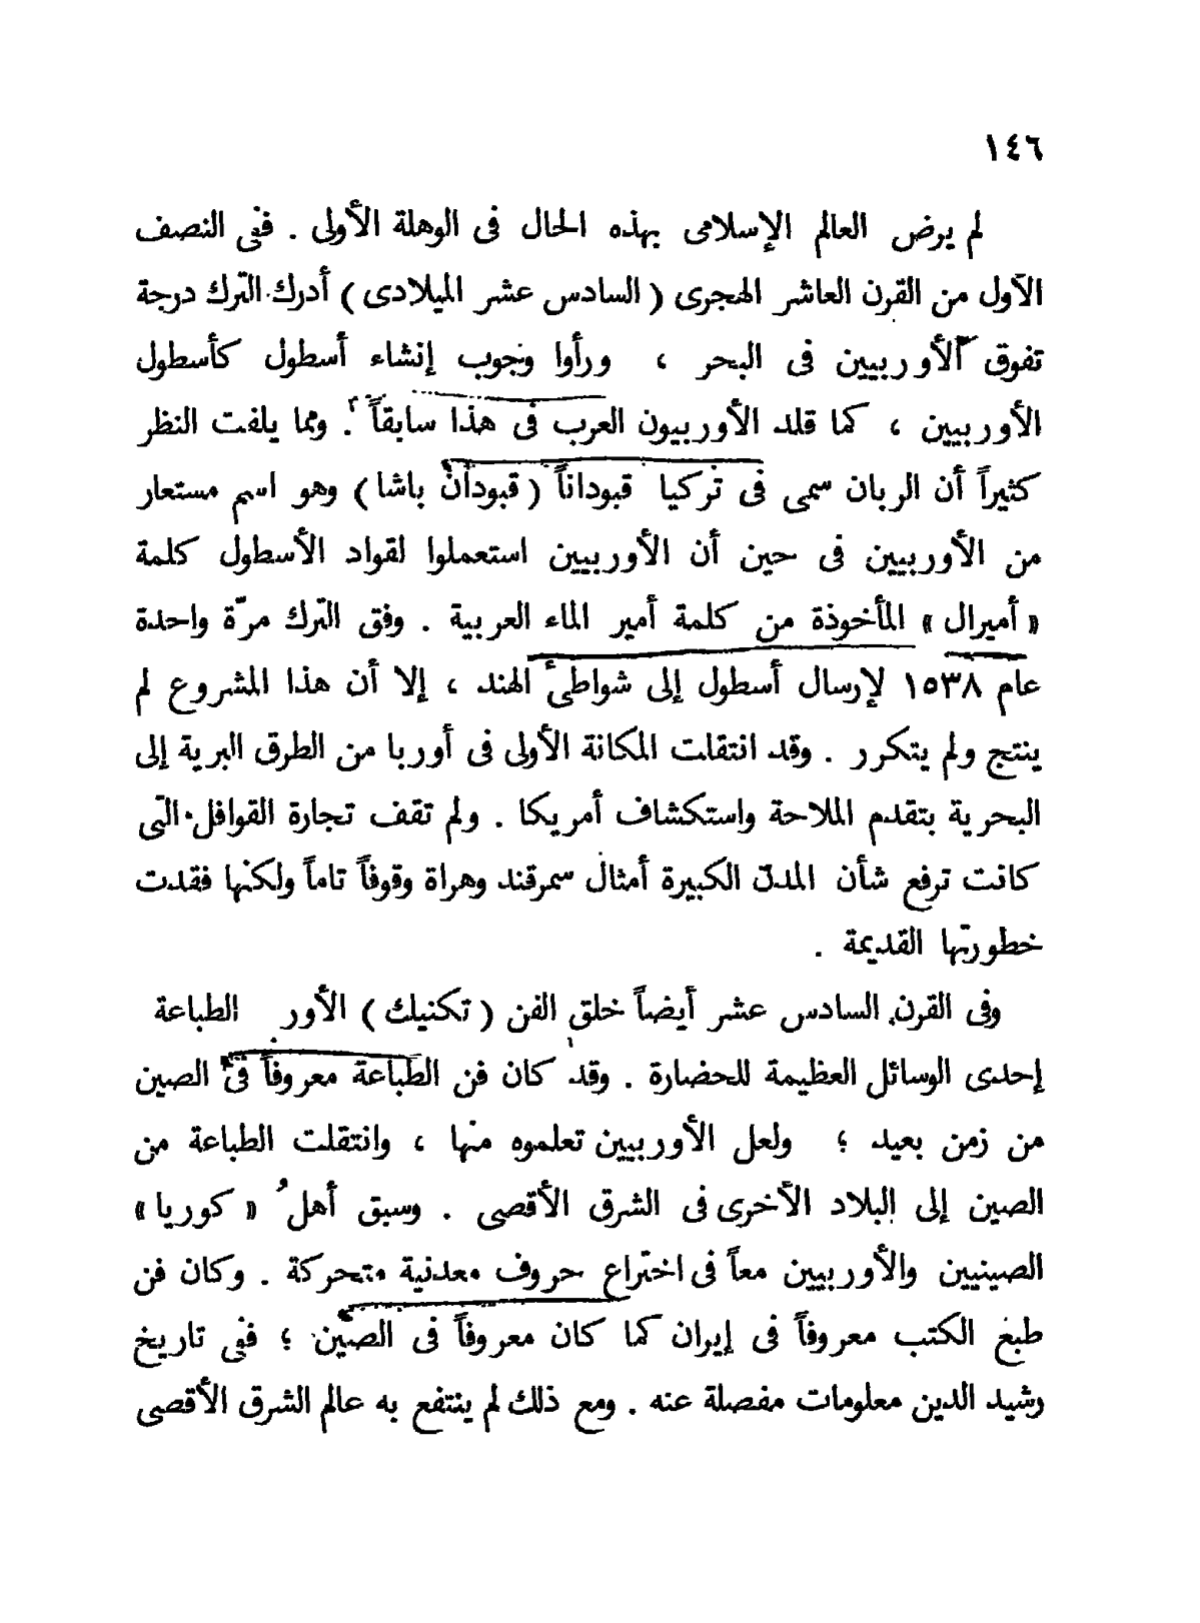 ١٤٦
لم يرض العالم الإسلامى بهذه الحال فى الوهلة الأولى . ففى النصف
الأول من القرن العاشر الهجرى ( السادس عشر الميلادى ) أدرك الترك درجة
تفوق الأوربيين فى البحر ، ورأوا وجوب إنشاء أسطول كأسطول
الأوربيين ، كما قلد الأوربيون العرب فى هذا سابقاً . ومما يلفت النظر
كثيراً أن الربان سمى فى تركيا قبوداناً ( قبودان باشا ) وهو اسم مستعار
من الأوربيين فى حين أن الأوربيين استعملوا لقواد الأسطول كلمة
« أميرال » المأخوذة من كلمة أمير الماء العربية . وفق الترك مرّة واحدة
عام ١٥٣٨ لإرسال أسطول إلى شواطئ الهند ، إلا أن هذا المشروع لم
ينتج ولم يتكرر . وقد انتقلت المكانة الأولى فى أوربا من الطرق البرية إلى
البحرية بتقدم الملاحة واستكشاف أمريكا . ولم تقف تجارة القوافل التى
كانت ترفع شأن المدن الكبيرة أمثال سمرقند وهراة وقوفاً تاماً ولكنها فقدت
خطورتها القديمة .
وفى القرن السادس عشر أيضاً خلق الفن ( تكنيك ) الأور الطباعة
إحدى الوسائل العظيمة للحضارة . وقد كان فن الطباعة معروفاً فى الصين
من زمن بعيد ؛ ولعل الأوربيين تعلموه منها ، وانتقلت الطباعة من
الصين إلى البلاد الأخرى فى الشرق الأقصى . وسبق أهل « كوريا »
الصينيين والأوربيين معاً فى اختراع حروف معدنية متحركة . وكان فن
طبع الكتب معروفاً فى إيران كما كان معروفاً فى الصين ؛ ففى تاريخ
رشيد الدين معلومات مفصلة عنه . ومع ذلك لم ينتفع به عالم الشرق الأقصى